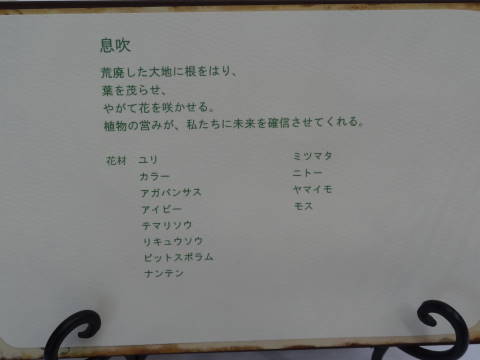 息吹
荒廃した大地に根をはり、
葉を茂らせ、
やがて花を咲かせる。
植物の営みが、私たちに未来を確信させてくれる。
花材 ユリ
カラー
アガパンサス
アイビー
テマリソウ
リキュウソウ
ピットスポラム
ナンテン
ミツマタ
ニトー
ヤマイモ
モス